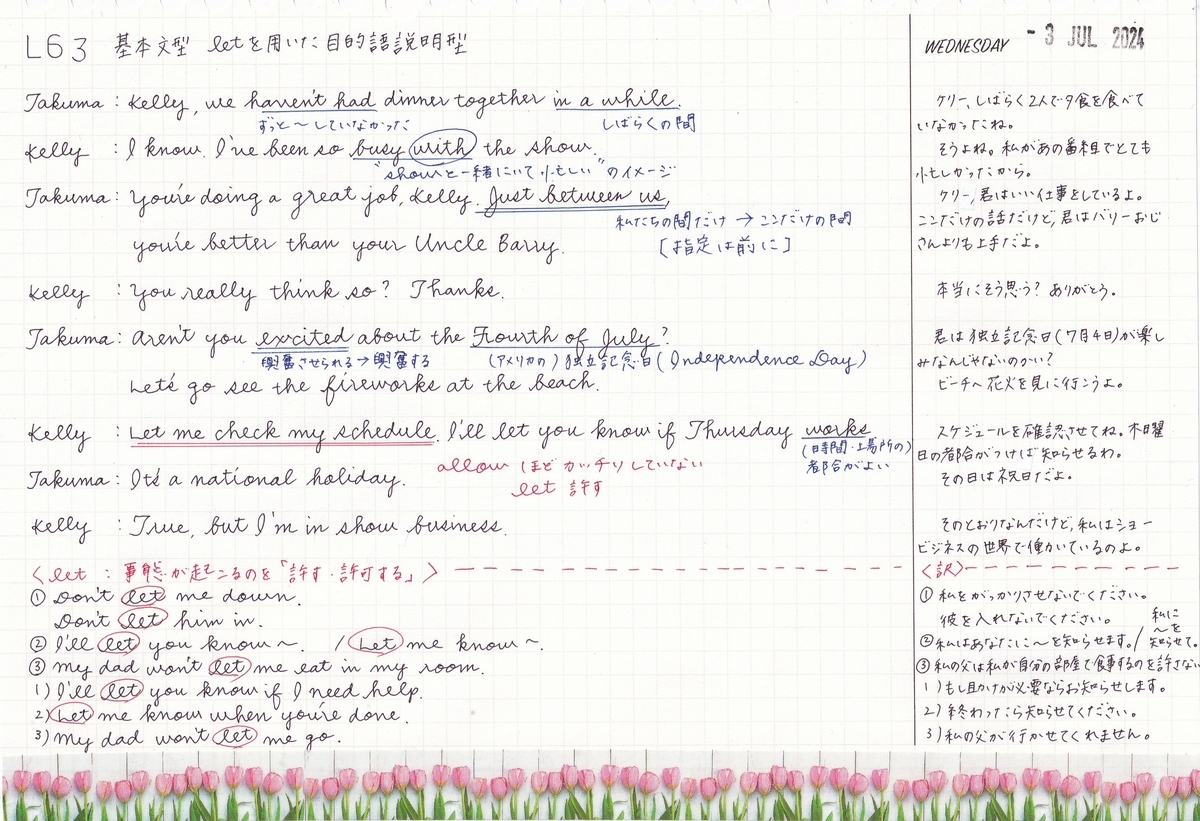 L63 基本文型 letを用いた目的語説明型
WEDNESDAY - 3 JUL 2024
Takuma : Kelly, we haven't had dinner together in a while.
ずっと〜していなかった しばらくの間
Kelly : I know. I've been so busy with the show.
"showと一緒にいて忙しい"のイメージ
Takuma : You're doing a great job, Kelly. Just between us,
私たちの間だけ → ここだけの間
you're better than your Uncle Barry.
[指定は前に]
Kelly : You really think so? Thanks.
Takuma : Aren't you excited about the Fourth of July?
興奮させられる→興奮する (アメリカの)独立記念日(Independence Day)
Let's go see the fireworks at the beach.
Kelly : Let me check my schedule. I'll let you know if Thursday works
(日時間・場所の)
都合がよい
allow ほどカッチリしていない
let 許す
Takuma : It's a national holiday.
Kelly : True, but I'm in show business.
<let : 事態が起こるのを「許す・許可する」>
① Don't let me down.
Don't let him in.
② I'll let you know〜. / Let me know〜.
③ My dad won't let me eat in my room.
1) I'll let you know if I need help.
2) Let me know when you're done.
3) My dad won't let me go.
ケリー、しばらく2人で夕食を食べて
いなかったね。
そうよね。私があの番組でとても
忙しかったから。
ケリー、君はいい仕事をしているよ。
ここだけの話だけど、君はバリーおじ
さんよりも上手だよ。
本当にそう思う? ありがとう。
君は独立記念日(7月4日)が楽し
みなんじゃないのかい?
ビーチへ花火を見に行こうよ。
スケジュールを確認させてね。木曜
日の都合がつけば知らせるわ。
その日は祝日だよ。
そのとおりなんだけど、私はショー
ビジネスの世界で働かいているのよ。
<訳>
① 私をがっかりさせないでください。
彼を入れないでください。
② 私はあなたに〜を知らせます。/ 私に〜を知らせて。
③ 私の父は私が自分の部屋で食事するのを許さない
1) もし助けが必要ならお知らせします。
2) 終わったら知らせてください。
3) 私の父が行かせてくれません。